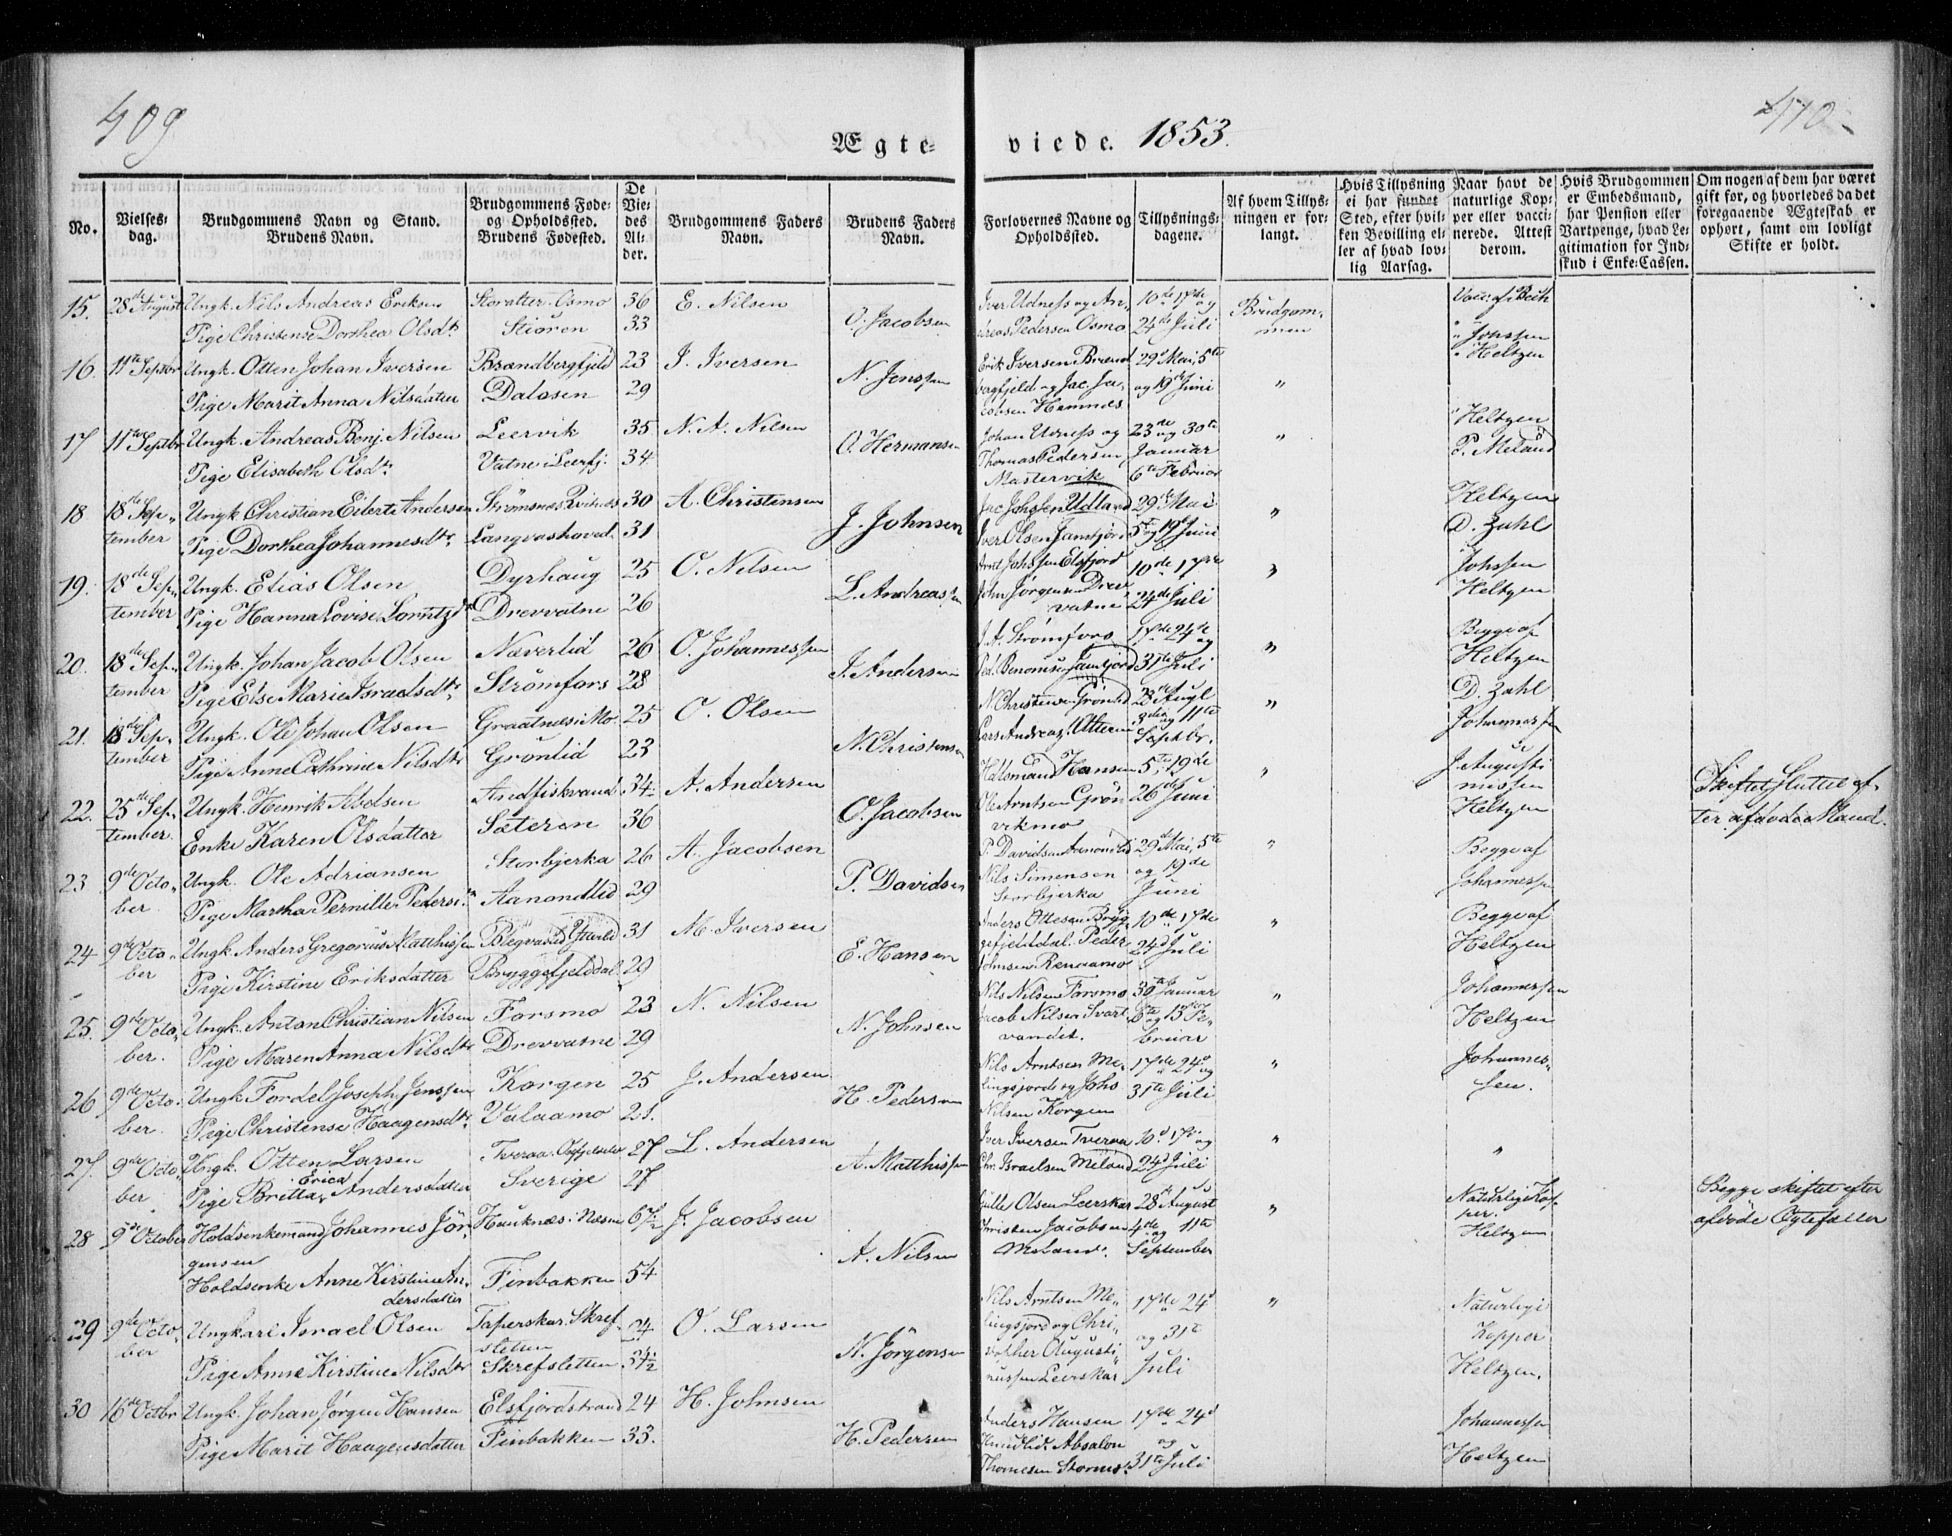 409
410
Ægte-viede. 1853.
No.
Vielses-dag.
Brudgommens Navn og Stand. Brudens Navn.
Brudgommens Føde- og Opholdssted. Brudens Fødested.
De Viedes Alder.
Brudgommens Faders Navn.
Brudens Faders Navn.
Forlovernes Navne og Opholdssted.
Tillysnings-dagene.
Af hvem Tillysningen er forlangt.
Hvis Tillysning ei har fundet Sted, efter hvilken Bevilling eller af hvad lovlig Aarsag.
Naar havt de naturlige Kopper eller vaccinerede. Attest derom.
Hvis Brudgommen er Embedsmand, har Pension eller Vartpenge, hvad Legitimation for Indskud i Enke-Cassen.
Om nogen af dem har været gift før, og hvorledes da det foregaaende Ægteskab er ophørt, samt om lovligt Skifte er holdt.
15. 28de August Ungk. Nils Andreas Eriksen Storalter-Osmo 36 E. Nilsen
Pige Christense Dorthea Olsdtr Stiøren 33 O. Jacobsen
Iver Udness og Andreas Pedersen Osmo 10de 17de og 24de Juli Brudgommen
" Johssen
" Heltzen
16. 11te Septbr Ungk. Otten Johan Iversen Brændbergfjeld 23 I. Iversen
Pige Marit Anna Nilsdatter Dalosen 29 N. Jenssen
Erik Iversen Brændbergfjeld og Jac. Jacobsen Hemnes 29de Mai, 5te og 19de Juni "
" Heltzen
17 11te Septbr Ungk. Andreas Benj. Nilsen Leervik 35 N. A. Nilsen
Pige Elisabeth Olsdtr Vatne i Leerfj. 34 O. Hermansen
Johan Udness og Thomas Pedersen Mastervik 23de og 30te Januar 6te Februar "
P. Meland
18 18de September Ungk. Christian Eilert Andersen Strømsnes 30 A. Christensen
Pige Dorthea Johannesdtr Langvashoved 31 J. Johnsen
Jac Johssen Udland Iver Olsen Jamtjord 29de Mai 5te og 19de Juni "
Heltzen
D. Zahl
19. 18de September Ungk. Elias Olsen Dyrhaug 25 O. Nilsen
Pige Hanna Lovise Lorntzdtr Drevvatne 26 L. Andreassen
Arnt Johssen Elsfjord John Jørgensen Drevvatne 10de 17de 24de Juli "
Johssen
Heltzen
20. 18de September Ungk. Johan Jacob Olsen Næverlid 26 O. Johannessen
Pige Else Marie Israelsdtr Strømfors 28 I. Andersen
J. A. Strømfors Ped. Benonisen Jamtjord 17de 24de og 31te Juli "
Begge af
Heltzen
21. 18de September Ungk. Ole Johan Olsen Graatnæs i Mo 25 O. Olsen
Pige Anne Cathrine Nilsdtr Grønlid 23 N. Christensen
N. Christensen Grønlid Lars Andreas. Utteren 28de Augt 3die og 11te Septbr. "
D. Zahl
Johannessen
22. 25de September. Ungk. Henrik Abelsen Andfiskvand 34 A. Andersen
Enke Karen Olsdatter Sæteren 36 O. Jacobsen
Hansen Ole Arntsen Grønvikmo 5te 19de 26de Juni "
J. Augustinussen
Heltzen
Skiftet sluttet efter afdøde Mand.
23 9de October Ungk. Ole Adriansen Storbjerka 26 A. Jacobsen
Pige Martha Pernille Pedersdtr Aanondlid 29 P. Davidsen
P. Davidsen Aanonlid Nils Simensen Storbjerka 29de Mai, 5te og 19de Juni "
Begge af
Johannessen
24 9de October Ungk. Anders Gregorius Matthissen Blegvaslid Ytterlid 31 M. Iversen
Pige Kirstine Eriksdatter Bryggefjelddal 29 E. Hansen
Anders Ottesen Bryggefjelddal. Peder Johnsen Rensaamo 10de 17de 24de Juli "
Begge af
Heltzen
25. 9de October. Ungk. Anton Christian Nilsen Forsmo 23 N. Nilsen
Pige Maren Anna Nilsdtr Drevvatne 29 N. Johnsen
Nils Nilsen Forsmo Jacob Nilsen Svartvandet. 30te Januar 6te og 13de Februar "
Johannessen
Heltzen
26 9de October. Ungk. Fordel Joseph Jenssen Korgen 25 J. Andersen
Pige Christense Haagensdtr Valaamo 21. H. Pedersen
Nils Arntsen Melingsjord og Johs Nilsen Korgen 17de 24de og 31te Juli "
Johannessen.
27. 9de October Ungk. Otten Larsen Tveraa 27 L. Andersen
Pige Britta Erica Andersdatter Sverige 27 A. Matthissen
Iver Iversen Tveraa Chr. Israelsen Meland 10de 17de og 24de Juli "
"
28 9de October Holdsenkemand Johannes Jørgensen Hauknæs i Næsne 67½ J. Jacobsen
Holdsenke Anne Kirstine Andersdatter Finbakken 54 A. Nilsen
Gulle Olsen Leerskar Christen Jacobsen Meland. 28de August 4de og 11te September "
Naturlige Kopper.
Heltzen
Begge skiftet efter afdøde Ægtefæller
29 9de October Ungkarl Israel Olsen Taperskar. Skrefsletten 24 O. Larsen
Pige Anne Kirstine Nilsdtr Skrefsletten N. Jørgensen
Nils Arntsen Melingsjord og Christopher Augustinussen Leerskar 17de 24de og 31te Juli "
Naturlige
Kopper
Heltzen.
30 16de Octbr Ungk. Johan Jørgen Hansen Elsfjordstrand 24 H. Johnsen
Pige Marit Haagensdatter Finbakken 33. H. Pedersen
Anders Hansen Knudlid. Absalon Thomesen 17de 24de og 31te Juli
Johannessen
Heltzen